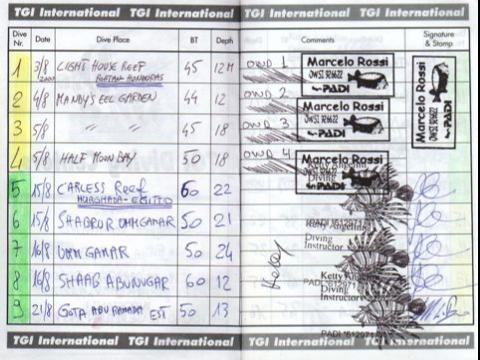 TGI International TGI International TGI International TGI International
Dive Nr. Date Dive Place BT Depth Comments Signature & Stamp
1 3/8 LIGHT HOUSE REEF 45 12M OWD 1
ROATAN HONDURAS
2 4/8 MANDY'S EEL GARDEN 44 12 OWD 2
3 5/8 " " 45 18 OWD 3
4 5/8 HALF MOON BAY 50 18 OWD 4
Marcelo Rossi
OWSI 926622
PADI
Marcelo Rossi
OWSI 926622
PADI
Marcelo Rossi
OWSI 926622
PADI
Marcelo Rossi
OWSI 926622
PADI
5 15/8 CARLESS REEF 60 22
HURGHADA - EGITTO
6 15/8 SHABRUR UMM GAMAR 50 21
7 16/8 UMM GAMAR 50 24
8 16/8 SHAAB ABUNUGAR 60 12
9 21/8 GOTA ABU RAMADA EST 50 13
Diving
Instructor
Ketty
Diving
Instructor
TGI International TGI International TGI International TGI International